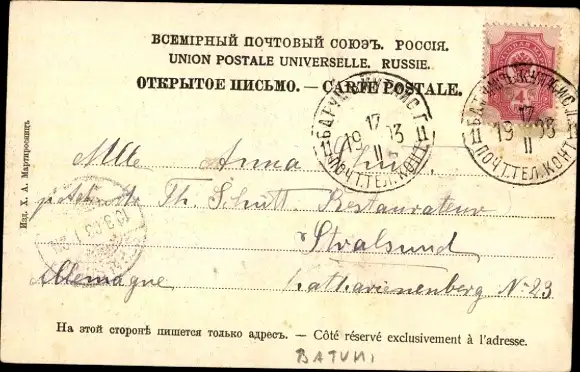 ВСЕМІРНЫЙ ПОЧТОВЫЙ СОЮЗЪ. РОССІЯ.
UNION POSTALE UNIVERSELLE. RUSSIE.
ОТКРЫТОЕ ПИСЬМО. — CARTE POSTALE.
БАТУМЪ
17
19 03
II
ПОЧТ.ТЕЛ.КОНТ.
17
19 03
II
ПОЧТ.ТЕЛ.КОНТ.
4
Mlle Anna
Th. Schütt Restaurateur
Stralsund
Allemagne Katharienenberg No 23
Изд. Х. А. Мартиросянцъ
На этой сторонѣ пишется только адресъ. — Côté réservé exclusivement à l'adresse.
BATUMI